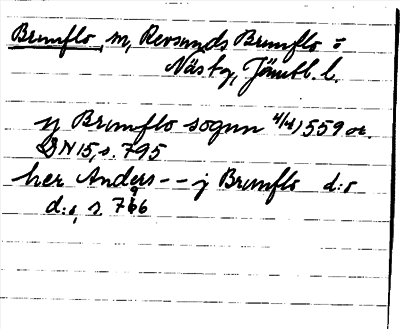 Brunflo, m, Revsunds Brunflo o
Näs tg, Jämtl. l.
y Brunflo sogun 4/12 1559 or.
DN 15, s. 795
her Anders -- j Brunflo d:o
d:o, s. 796